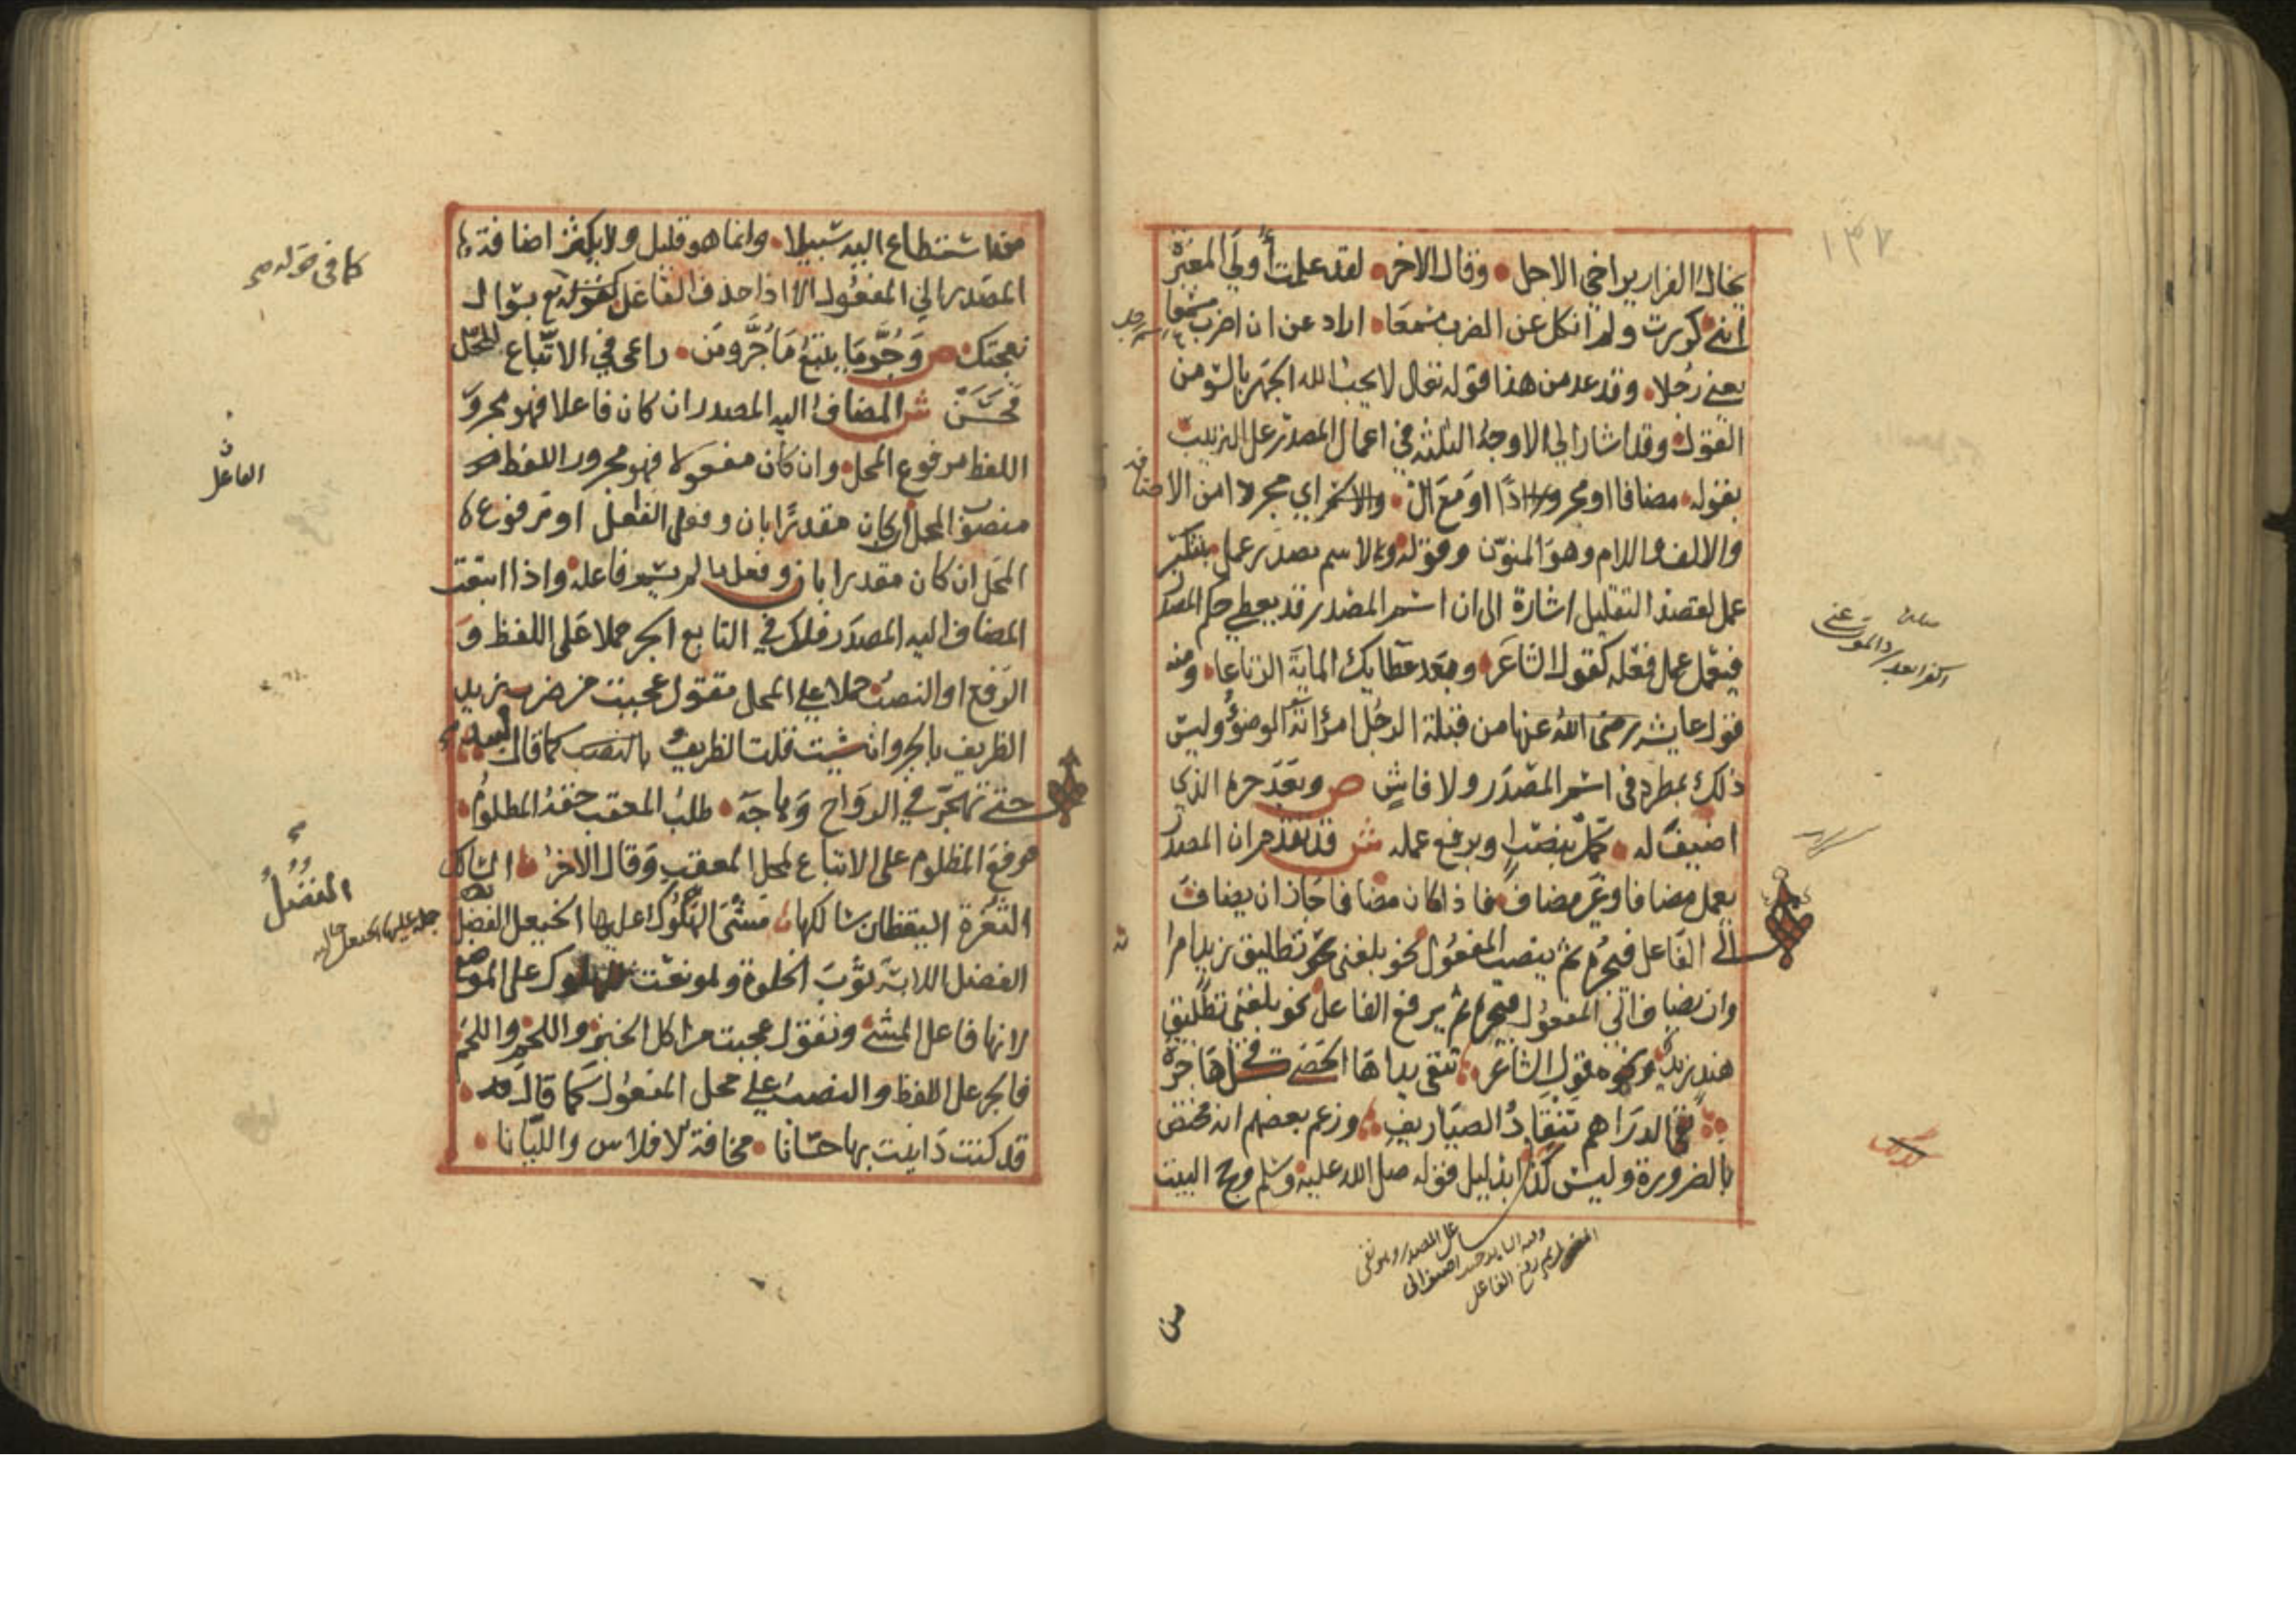 ١٣٧
يخال الفرار يراخي الاجل وقال الاخر لقد علمت أولي المغيرة
انني كررت ولم انكل عن الضرب مسمعا اراد عن ان اضرب مسمعا
يعني رجلا وقد عد من هذا قوله تعالى لا يحب الله الجهر بالسوء من
القول وقد اشار الي الاوجه الثلثه في اعمال المصدر على الترتيب
بقوله مضافا او مجردا او مع ال اي مجردا من الاضافه
والالف واللام وهو المنون وقوله ولاسم مصدر عمل بتنكير
عمل لقصد التقليل اشارة الى ان اسم المصدر قد يعطي حكم المصدر
فيعمل عمل فعله كقول الشاعر وبعد عطايك الماية الرتاعا ومنه
قول عايشه رضى الله عنها من قبلة الرجل امرأته الوضوُ وليس
ذلك بمطرد فى اسم المصدر ولا فاشٍ ص وبعد جره الذي
اضيف له كمل بنصب او برفع عمله ش قد تقدم ان المصدر
يعمل مضافا وغير مضاف فاذا كان مضافا جاز ان يضاف
الى الفاعل فيجره ثم ينصب المفعول نحو بلغنى تطليق زيد امراته
وان يضاف الي المفعول فيجره ثم يرفع الفاعل نحو بلغني تطليق
هند زيد ونحوه قول الشاعر تنفى يداها الحصى في كل هاجرة
نفي الدراهم تنقاد الصياريف وزعم بعضهم انه مختص
بالضرورة وليس كذا بدليل قوله صلى الله عليه وسلم وحج البيت
اكفرا بعد رد الموت عني
من
من استطاع اليه سبيلا وانما هو قليل ولا يكثر اضافة
المصدر الي المفعول الا اذا حذف الفاعل كقوله تع بسؤال
نعجتك ص وجر ما يتبع ما جر ومن راعى في الاتباع المحل
فحسن ش المضاف اليه المصدر ان كان فاعلا فهو مجرور
اللفظ مرفوع المحل وان كان مفعولا فهو مجرور اللفظ
منصوب المحل ان كان مقدرا بان وفعل الفاعل او مرفوع
المحل ان كان مقدرا بان وفعل ما لم يسم فاعله واذا اتبعت
المضاف اليه المصدر فلك في التابع الجر حملا على اللفظ و
الرفع او النصب حملا على المحل فتقول عجبت من ضرب زيد
الظريف بالجر وان شيت قلت الظريفُ كما قال لبيد
حتى تهجر في الرواح وهاجه طلب المعقب حقه المظلوم
فرفع المظلوم على الاتباع لمحل المعقب وقال الاخر السالك
الثغرة اليقظان سالكها مشى الهلوك عليها الخيعل الفضل
الفضل اللابسة ثوب الخلوة وهو نعت للهلوك على الموضع
لانها فاعل المشى وتقول عجبت من اكل الخبز واللحم واللحم
فالجر على اللفظ والنصب على محل المفعول كما قال
قد كنت داينت بها حسانا مخافة الافلاس والليانا
كما فى قوله
الفاعل
الفضل